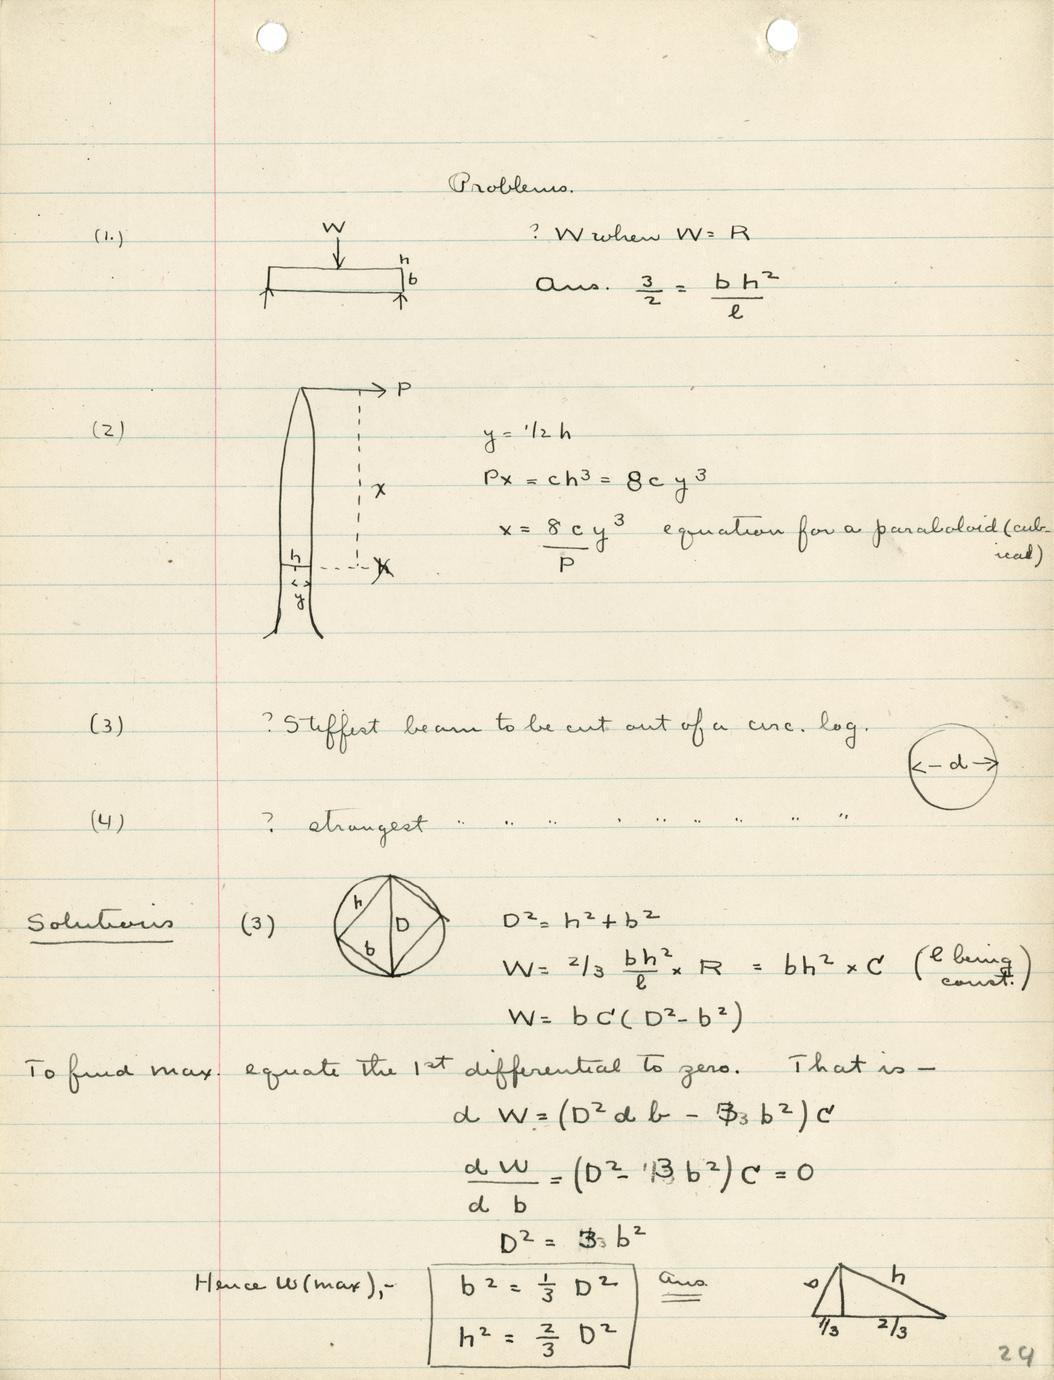 Problems.
(1.)
W
h
b
? W when W = R
Ans. 3/2 = bh²/l
(2)
P
x
h
y
y = 1/2 h
Px = ch³ = 8cy³
x = 8cy³/P equation for a paraboloid (cub-
ical)
(3) ? Stiffest beam to be cut out of a circ. log.
d
(4) ? strongest " " " " " " " " "
Solutions (3)
h
D
b
D² = h² + b²
W = 2/3 bh²/l × R = bh² × C (l being
const.)
W = bC(D² - b²)
To find max. equate the 1st differential to zero. That is —
dW = (D² db - 3b²)C
dW/db = (D² - 3b²)C = 0
D² = 3b²
Hence W(max),-
b² = 1/3 D² Ans
h² = 2/3 D²
b
h
1/3 2/3
29